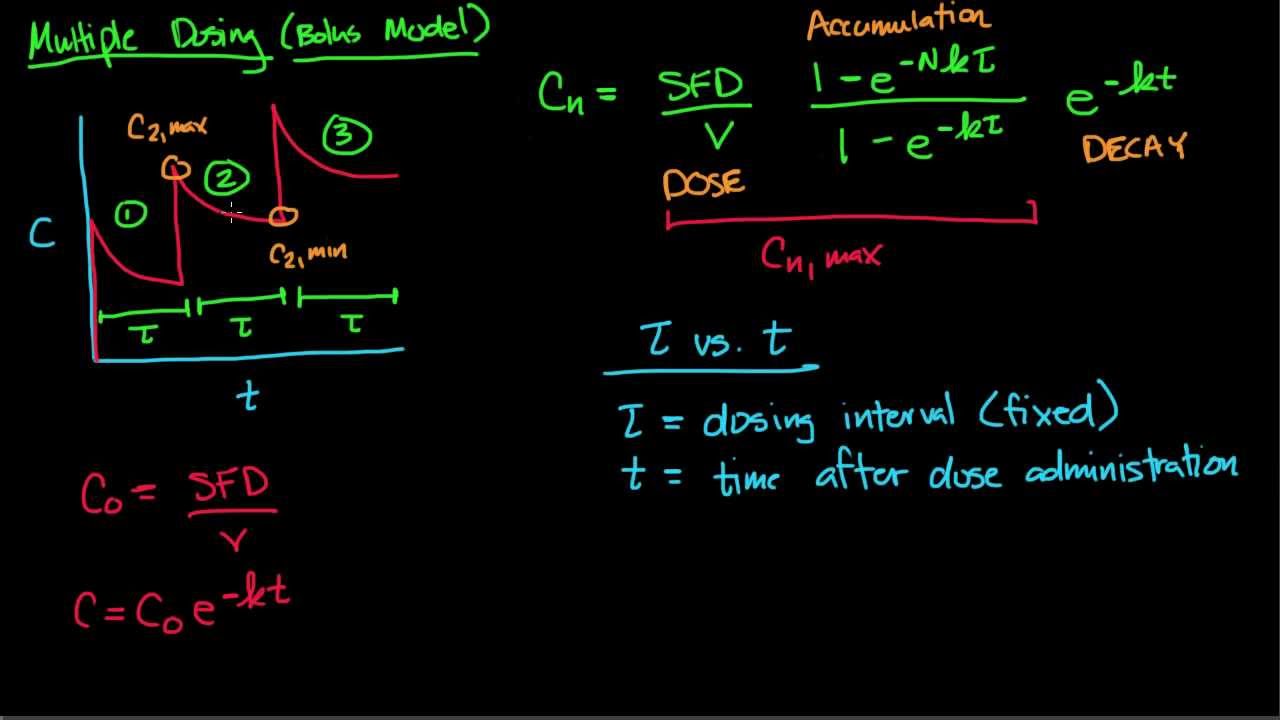 Multiple Dosing (Bolus Model)
C
C2,max
①
②
③
C2,min
τ τ τ
t
C0 = SFD
V
C = C0 e^-kt
Accumulation
Cn = SFD/V (1 - e^-Nkτ)/(1 - e^-kτ) e^-kt
DOSE
DECAY
Cn, max
τ vs. t
τ = dosing interval (fixed)
t = time after dose administration